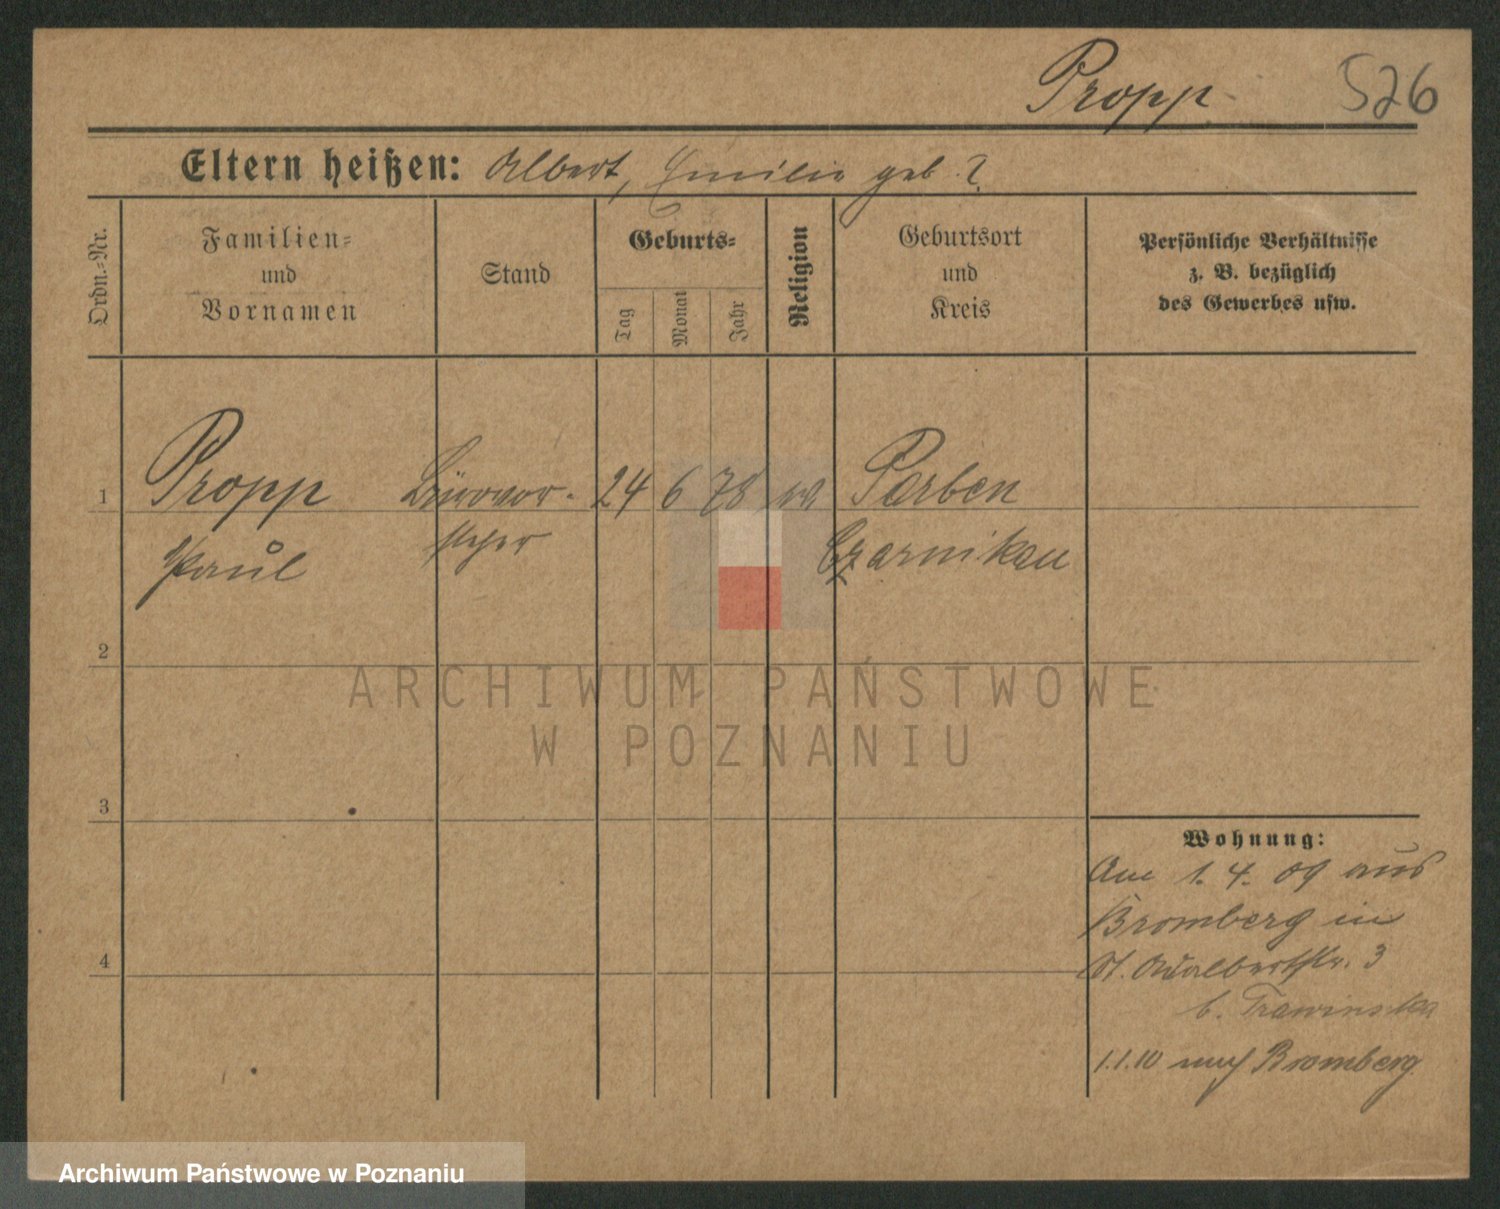 Propp
526
Eltern heißen: Albert, Emilie geb. ?
Ordn.=Nr.
Familien=
und
Vornamen
Stand
Geburts=
Tag
Monat
Jahr
Religion
Geburtsort
und
Kreis
Persönliche Verhältnisse
z. B. bezüglich
des Gewerbes usw.
1
Propp
Bürovor-
24
6
78
ev.
Parben
Paul
steher
Czarnikau
2
ARCHIWUM PAŃSTWOWE
W POZNANIU
3
Wohnung:
Am 1. 4. 09 aus
Bromberg in
4
St. Adalbertstr. 3
b. Trawinska
1.1.10 nach Bromberg
Archiwum Państwowe w Poznaniu